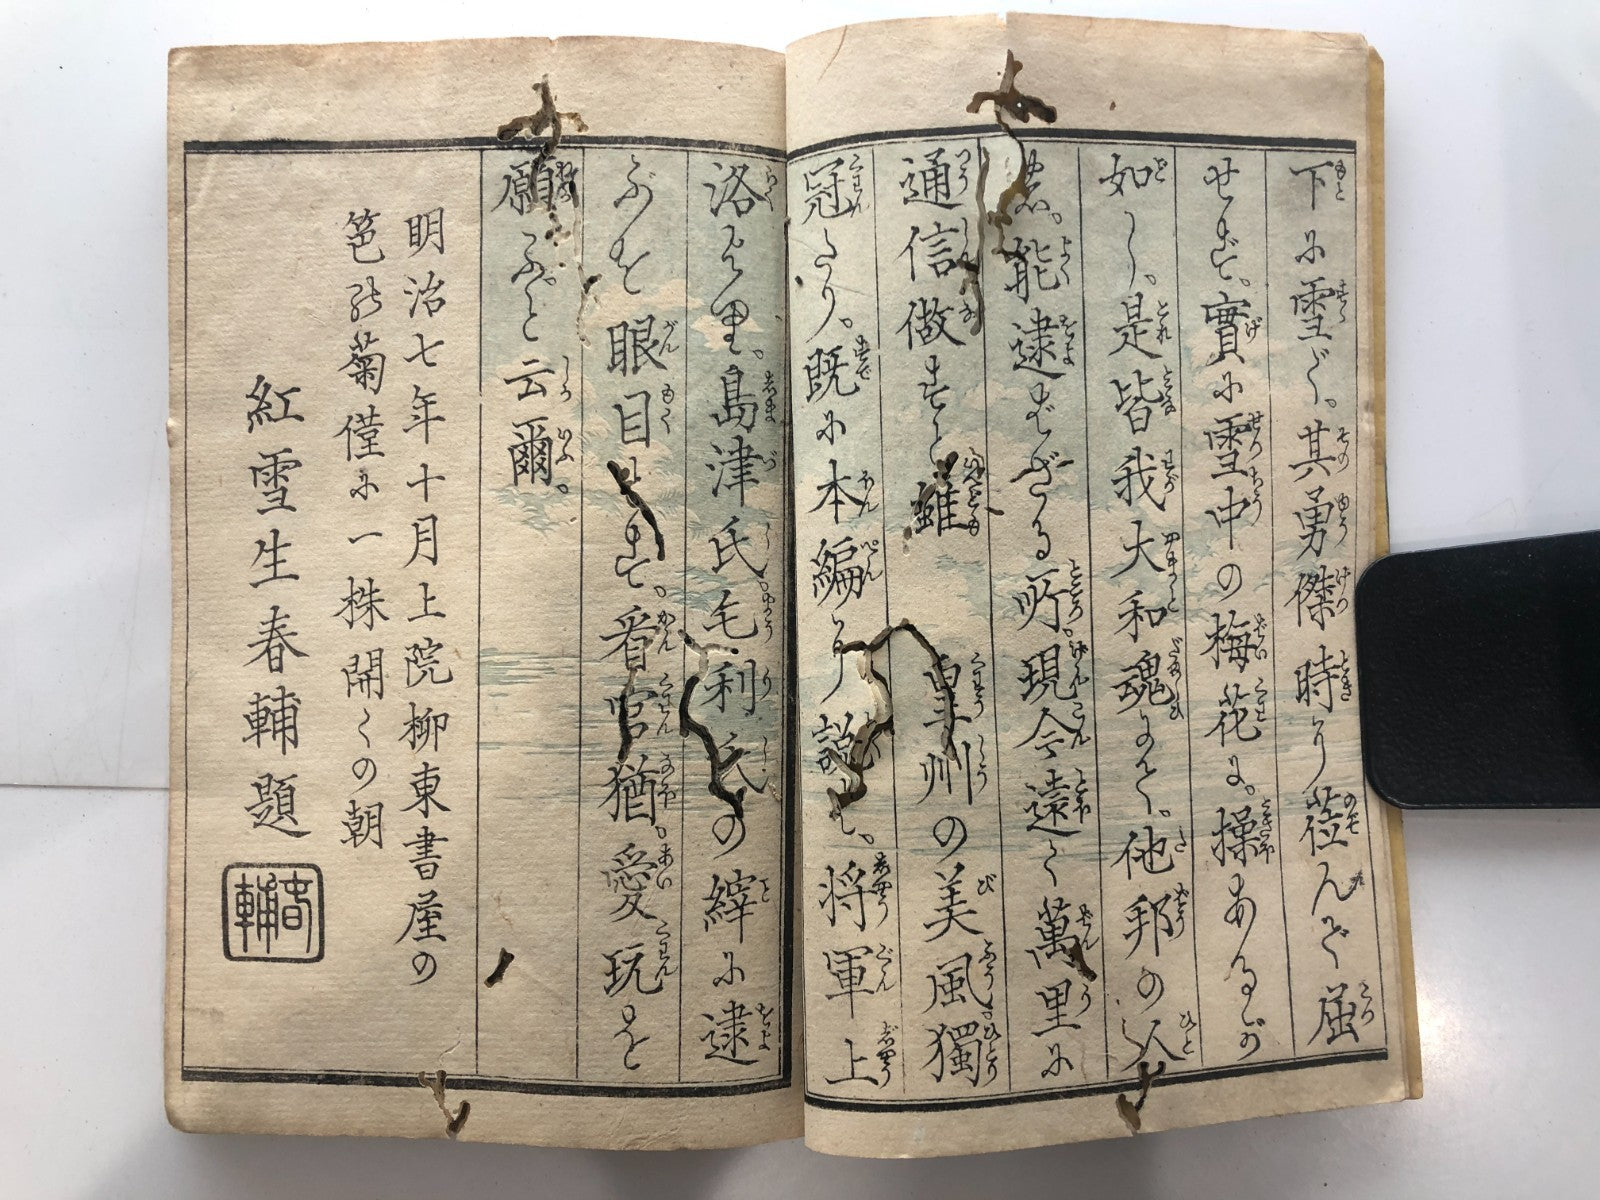 下に雪ぐ。其勇傑時に莅んで屈
せず。實に雪中の梅花に。操あるが
如し。是皆我大和魂にて。他邦の人
の。能逮ばざる所。現今遠く萬里に
通信做すと雖 皇州の美風。獨
冠たり。既に本編に説せ。将軍上
洛より。島津氏。毛利氏の縡に逮
ぶを眼目とす。看官猶。愛玩を
願ふ。と云爾。
明治七年十月上院柳東書屋の
笆の菊僅に一株開くの朝
紅雪生春輔題
春輔